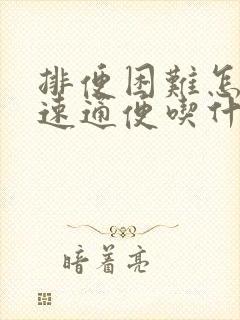 排便困難怎
速通便喫什
暗着亮